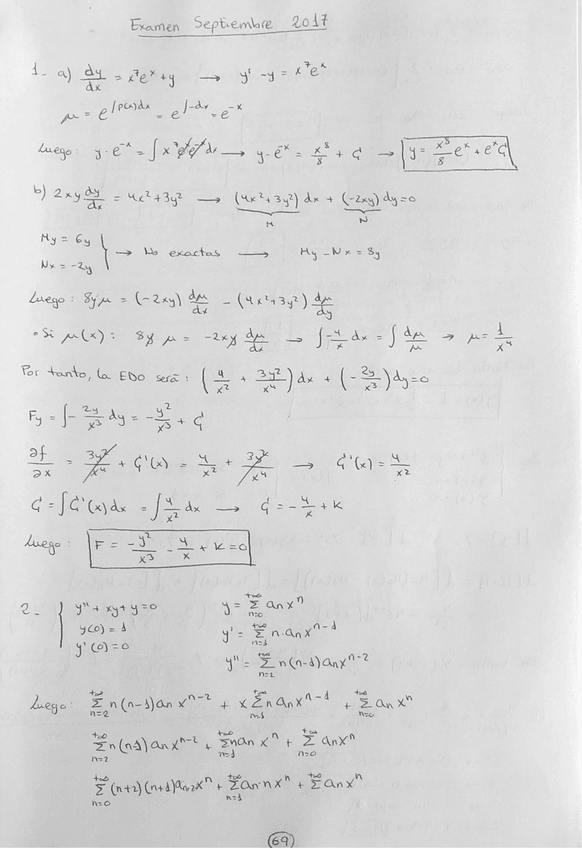 Examen Septiembre 2017
1- a) dy/dx = x⁷eˣ + y → y' - y = x⁷eˣ
μ = e^∫p(x)dx = e^∫-dx = e⁻ˣ
Luego: y·e⁻ˣ = ∫ x⁷eˣe⁻ˣdx → y·e⁻ˣ = x⁸/8 + C → y = x⁸/8 eˣ + eˣC
b) 2xy dy/dx = 4x² + 3y² → (4x² + 3y²) dx + (-2xy) dy = 0
M N
My = 6y
Nx = -2y } → No exactas → My - Nx = 8y
Luego: 8yμ = (-2xy) dμ/dx - (4x² + 3y²) dμ/dy
• Si μ(x): 8y μ = -2xy dμ/dx → ∫-4/x dx = ∫dμ/μ → μ = 1/x⁴
Por tanto, la EDO será: (4/x² + 3y²/x⁴) dx + (-2y/x³) dy = 0
Fy = ∫-2y/x³ dy = -y²/x³ + C
∂f/∂x = 3y²/x⁴ + C'(x) = 4/x² + 3y²/x⁴ → C'(x) = 4/x²
C = ∫C'(x)dx = ∫4/x² dx → C = -4/x + K
Luego: F = -y²/x³ - 4/x + K = 0
2- { y'' + xy + y = 0 y = Σ_{n=0}^{+∞} aₙxⁿ
y(0) = 1 y' = Σ_{n=1}^{+∞} n·aₙxⁿ⁻¹
y'(0) = 0 y'' = Σ_{n=2}^{+∞} n(n-1)aₙxⁿ⁻²
Luego: Σ_{n=2}^{+∞} n(n-1)aₙxⁿ⁻² + x Σ_{n=1}^{+∞} n aₙxⁿ⁻¹ + Σ_{n=0}^{+∞} aₙxⁿ
Σ_{n=2}^{+∞} n(n-1)aₙxⁿ⁻² + Σ_{n=1}^{+∞} naₙxⁿ + Σ_{n=0}^{+∞} aₙxⁿ
Σ_{n=0}^{+∞} (n+2)(n+1)aₙ₊₂xⁿ + Σ_{n=1}^{+∞} aₙ·n xⁿ + Σ_{n=0}^{+∞} aₙxⁿ
69